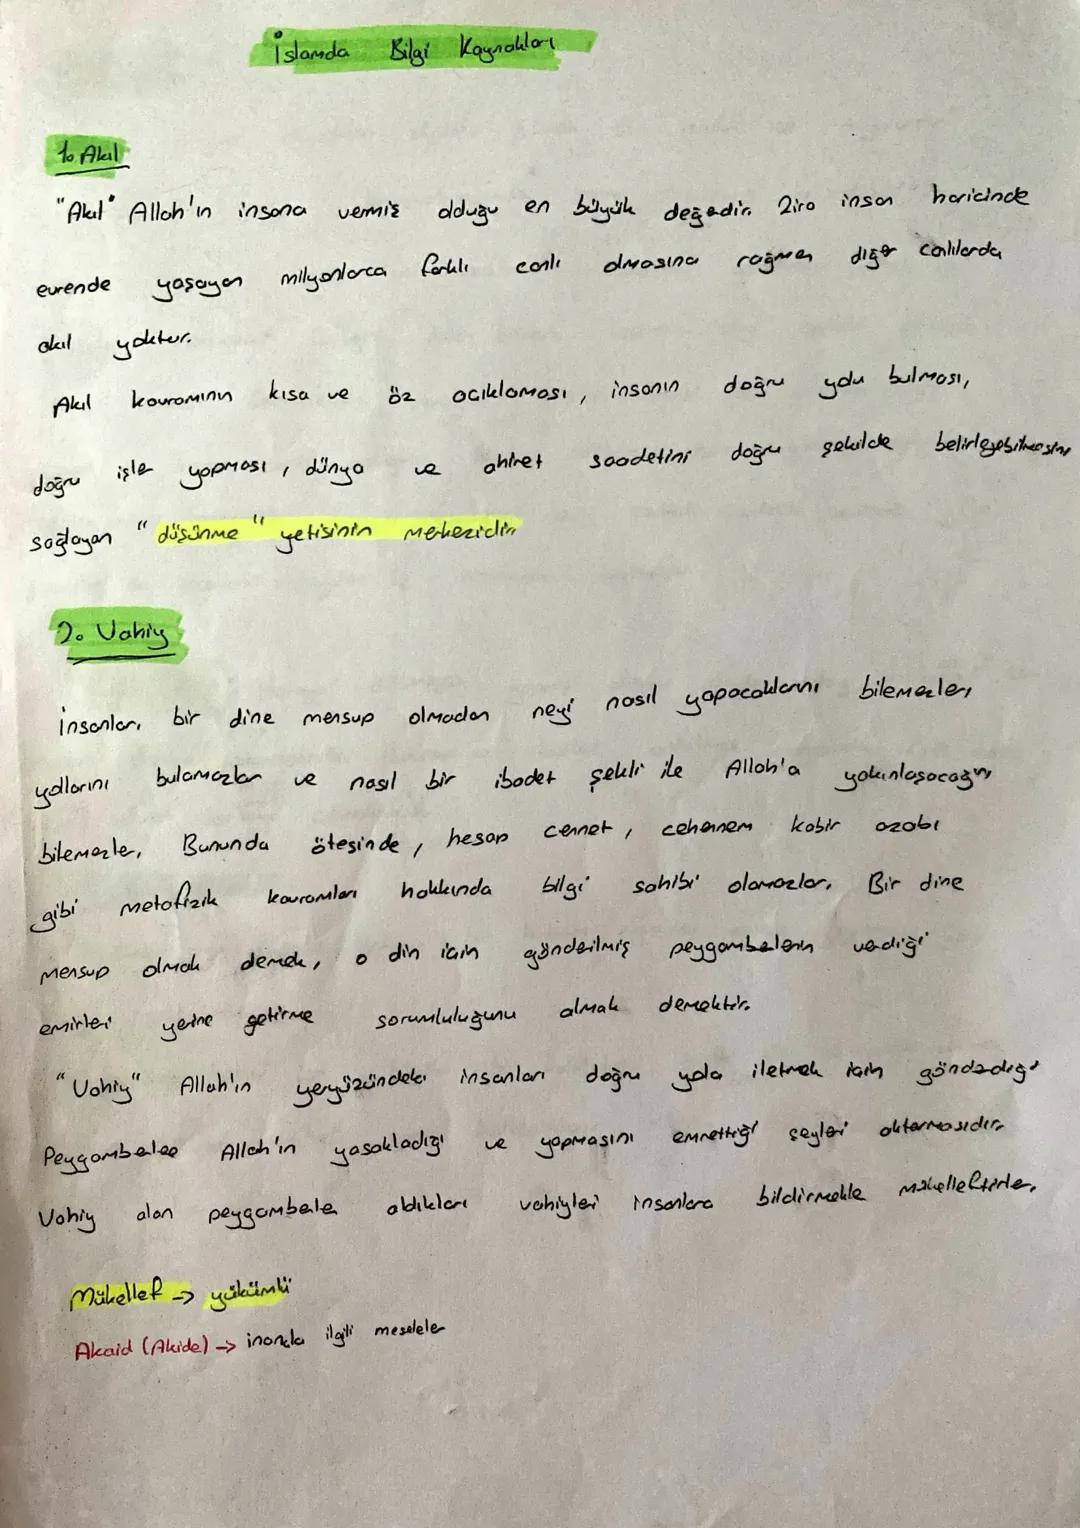 İslamda Bilgi Kaynakları
1. Akıl
"Akıl" Allah'ın insana vermiş olduğu en büyük değerdir. Zira insan haricinde
evrende yaşayan milyonlarca farklı canlı olmasına rağmen diğer canlılarda
akıl yoktur.
Akıl kavramının kısa ve öz açıklaması, insanın doğru yolu bulması,
doğru işler yapması, dünya ve ahiret saadetini doğru şekilde belirleyebilmesini
sağlayan "düşünme" yetisinin merkezidir.
2. Vahiy
İnsanlar, bir dine mensup olmadan neyi nasıl yapacaklarını bilemezler,
yollarını bulamazlar ve nasıl bir ibadet şekli ile Allah'a yakınlaşacağını
bilemezler. Bununda ötesinde, hesap cennet, cehennem kabir azabı
gibi metafizik kavramları hakkında bilgi sahibi olamazlar. Bir dine
mensup olmak demek, o din için gönderilmiş peygamberlerin verdiği
emirleri yerine getirme sorumluluğunu almak demektir.
"Vahiy" Allah'ın yeryüzündeki insanları doğru yola iletmek için gönderdiği
Peygamberlere Allah'ın yasakladığı ve yapmasını emrettiği şeyleri aktarmasıdır.
Vahiy alan peygamberler aldıkları vahiyleri insanlara bildirmekle mükelleftirler.
Mükellef → yükümlü
Akaid (Akide) → inançla ilgili meseleler